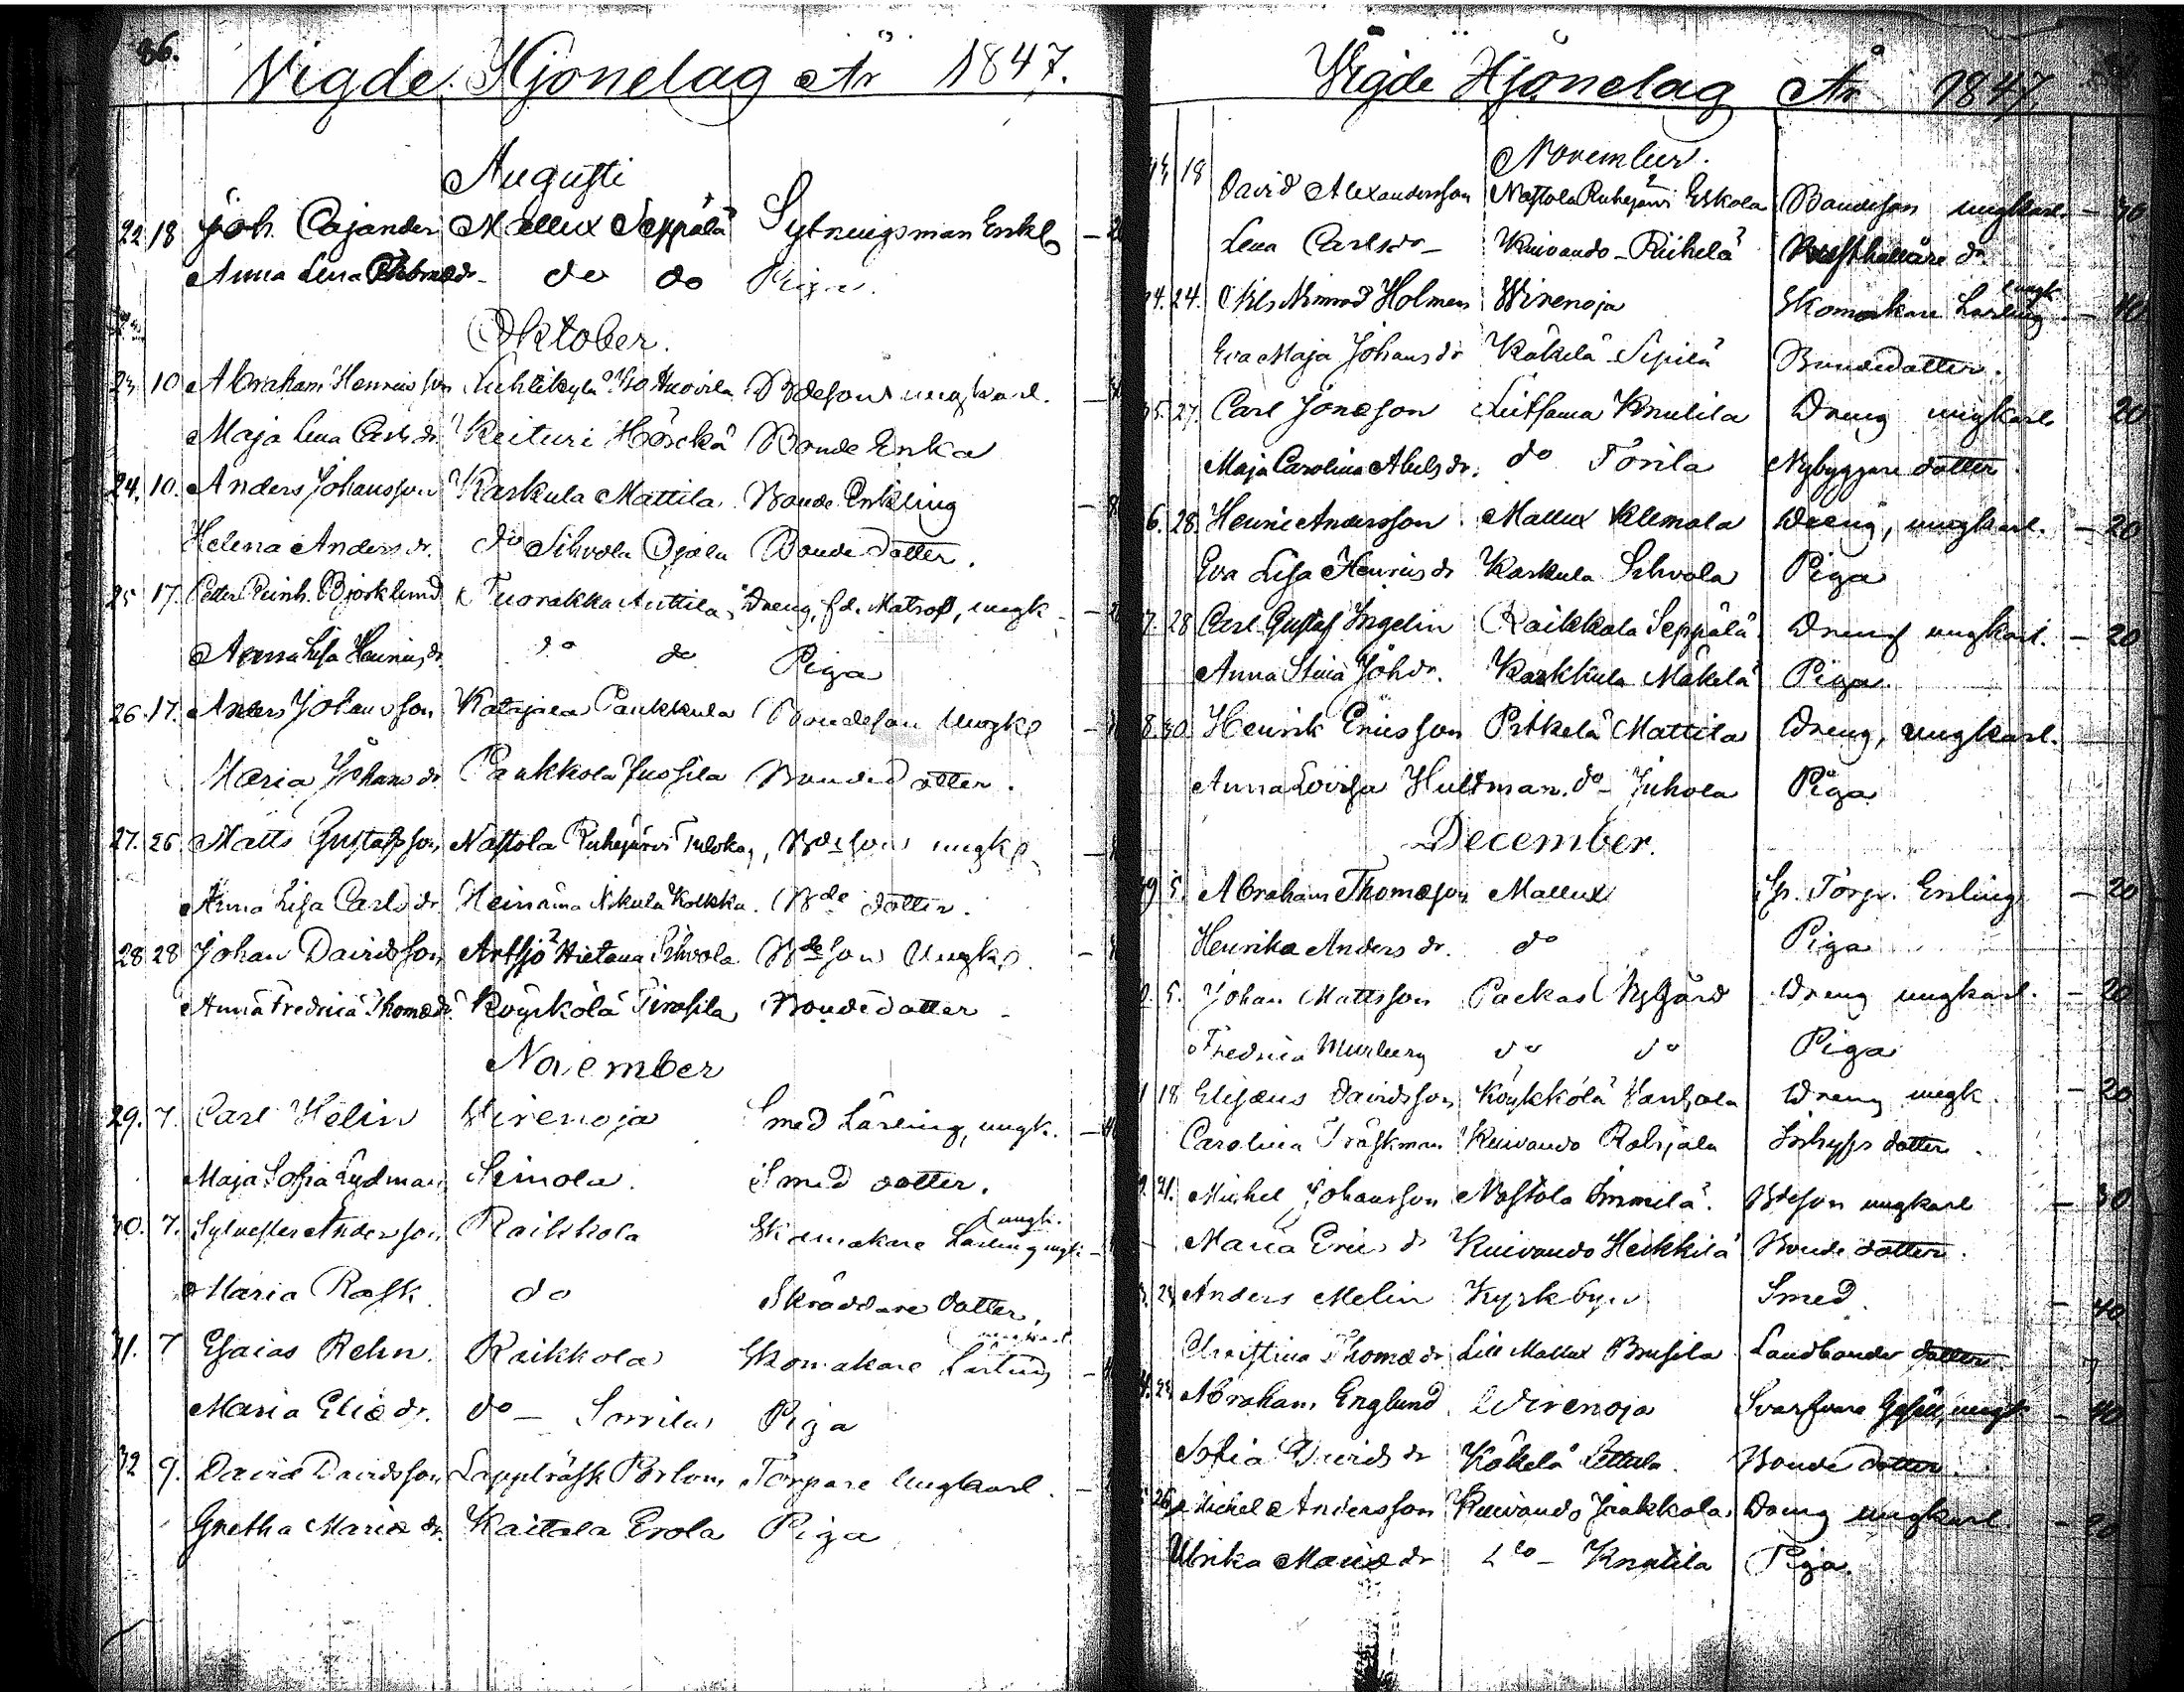 36.
Vigde Hjonelag År 1847.
Augusti
22 18 Joh. Cajander Mallux Seppälä Sytningsman Enkl
Anna Lena do do Piga.
Oktober.
23 10 Abraham Henricsson Huovila Bdeson ungkarl.
Maja Lena Carls dr. Keituri Höckä Bonde Enka
24. 10. Anders Johansson Karkula Mattila Bonde Enkling
Helena Anders dr. do Sihvola Ojala Bonde dotter.
25 17. Petter Reinh. Björklund Tuorakka Anttila Dreng, f.d. Matros, ungk
Anna Lisa Henrics dr. do do Piga
26. 17. Anders Johansson Pankkula Bondeson Ungk
Maria Johans dr Pankkola Jussila Bondedotter.
27. 26 Matts Gustafsson Nastola Ruhejärvi Bdeson ungk
Anna Lisa Carls dr Heinäma Nikula Kolkka. Bde dotter.
28 28 Johan Davidsson Artsjö Hietana Sihvola Bdeson Ungk
Anna Fredrica Thomædr Röyskölä Simosila Bondedotter
November
29. 7. Carl Helin Wirenoja Smed Lärling, ungk.
Maja Sofia Lydman Seinola. Smed dotter.
30. 7. Sylvester Andersson Raikkola Skomakare Lärling ungk
Maria Rask do Skräddare dotter,
31. 7 Esaias Rehn. Raikkola Skomakare Lärling
Maria Eliæ dr. do Sorrila Piga
32 9. David Davidsson Lappträsk Porlom Torpare Ungkarl.
Gretha Mariæ dr. Kaitala Erola Piga
Vigde Hjonelag År 1847.
November.
18 David Alexandersson Nastola Ruhejärvi Eskola Bondeson ungkarl. 30
Lena Carlsdr Kuivando Riihelä Rusthållare dr
24. Holmen Wirenoja Skomakare Lärling ungk 40
Eva Maja Johans dr Käkelä Sipilä Bondedotter.
27. Carl Jonæson Leitsama Knutila Dreng ungkarl. 20
Maja Carolina Abels dr. do Torila Nybyggare dotter
6. 28. Henric Andersson. Mallux Klemola Dreng, ungkarl. 20
Eva Lisa Henrics dr Karkula Sihvola Piga
7. 28 Carl Gustaf Ingelin Raikkola Seppälä Dreng ungkarl. 20
Anna Stina Joh dr. Karkkula Mäkelä Piga.
8. 30. Henrik Ericsson Pitkelä Mattila Dreng, ungkarl.
Anna Lovisa Hultman. do Juhola Piga
December.
39 5. Abraham Thomæson Mallux Torp. Enkling 20
Henrika Anders dr. do Piga
5. Johan Mattsson Packas Nygård Dreng ungkarl. 20
Fredrica Murberg do do Piga
1 18 Elisæus Davidsson Köykkölä Vanhala Dreng ungk. 20
Carolina Träskman Kuivando Rahijala Inhyss dotter
21. Michel Johansson Nastola Immilä. Bdeson ungkarl 30
Maria Erics dr Kuivando Heikkilä Bonde dotter.
3. Anders Melin Kyrkbyn Smed. 40
Christina Thomæ dr Lill Mallux Brusila Landbonde dotter
Abraham Englund Wirenoja Svarfvare Gesäll, ungk 40
Sofia Davids dr Käkelä Bonde dotter
26 Michel Andersson Kuivando Jaakkola Dreng ungkarl. 20
Ulrika Mariæ dr do Knutila Piga.